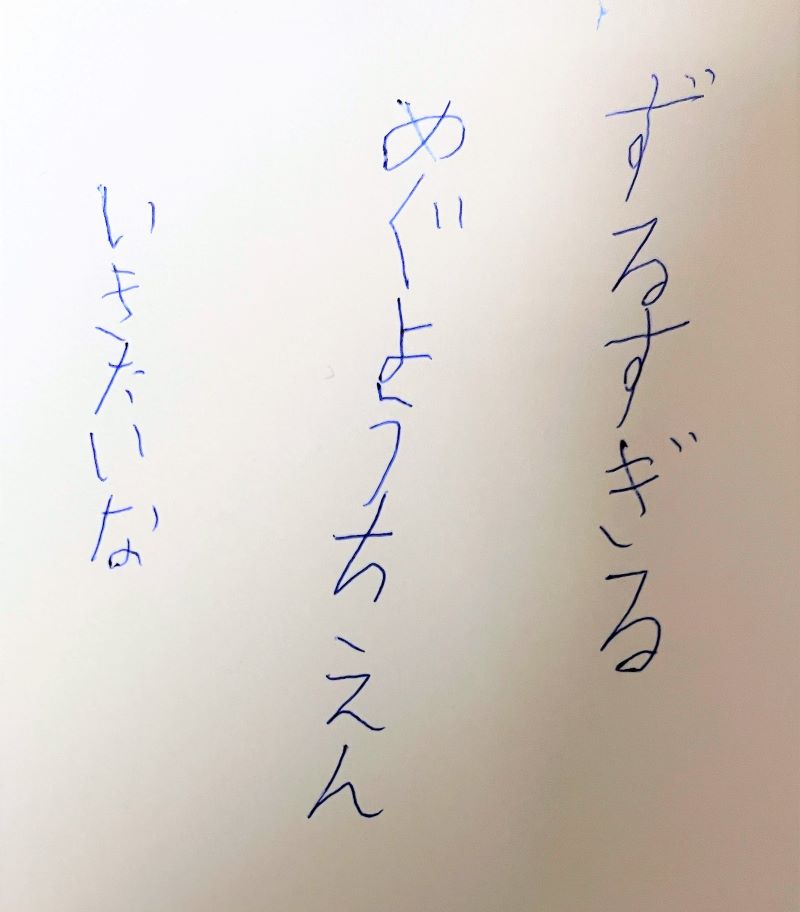 ずるすぎる
めぐようちえん
いきたいな